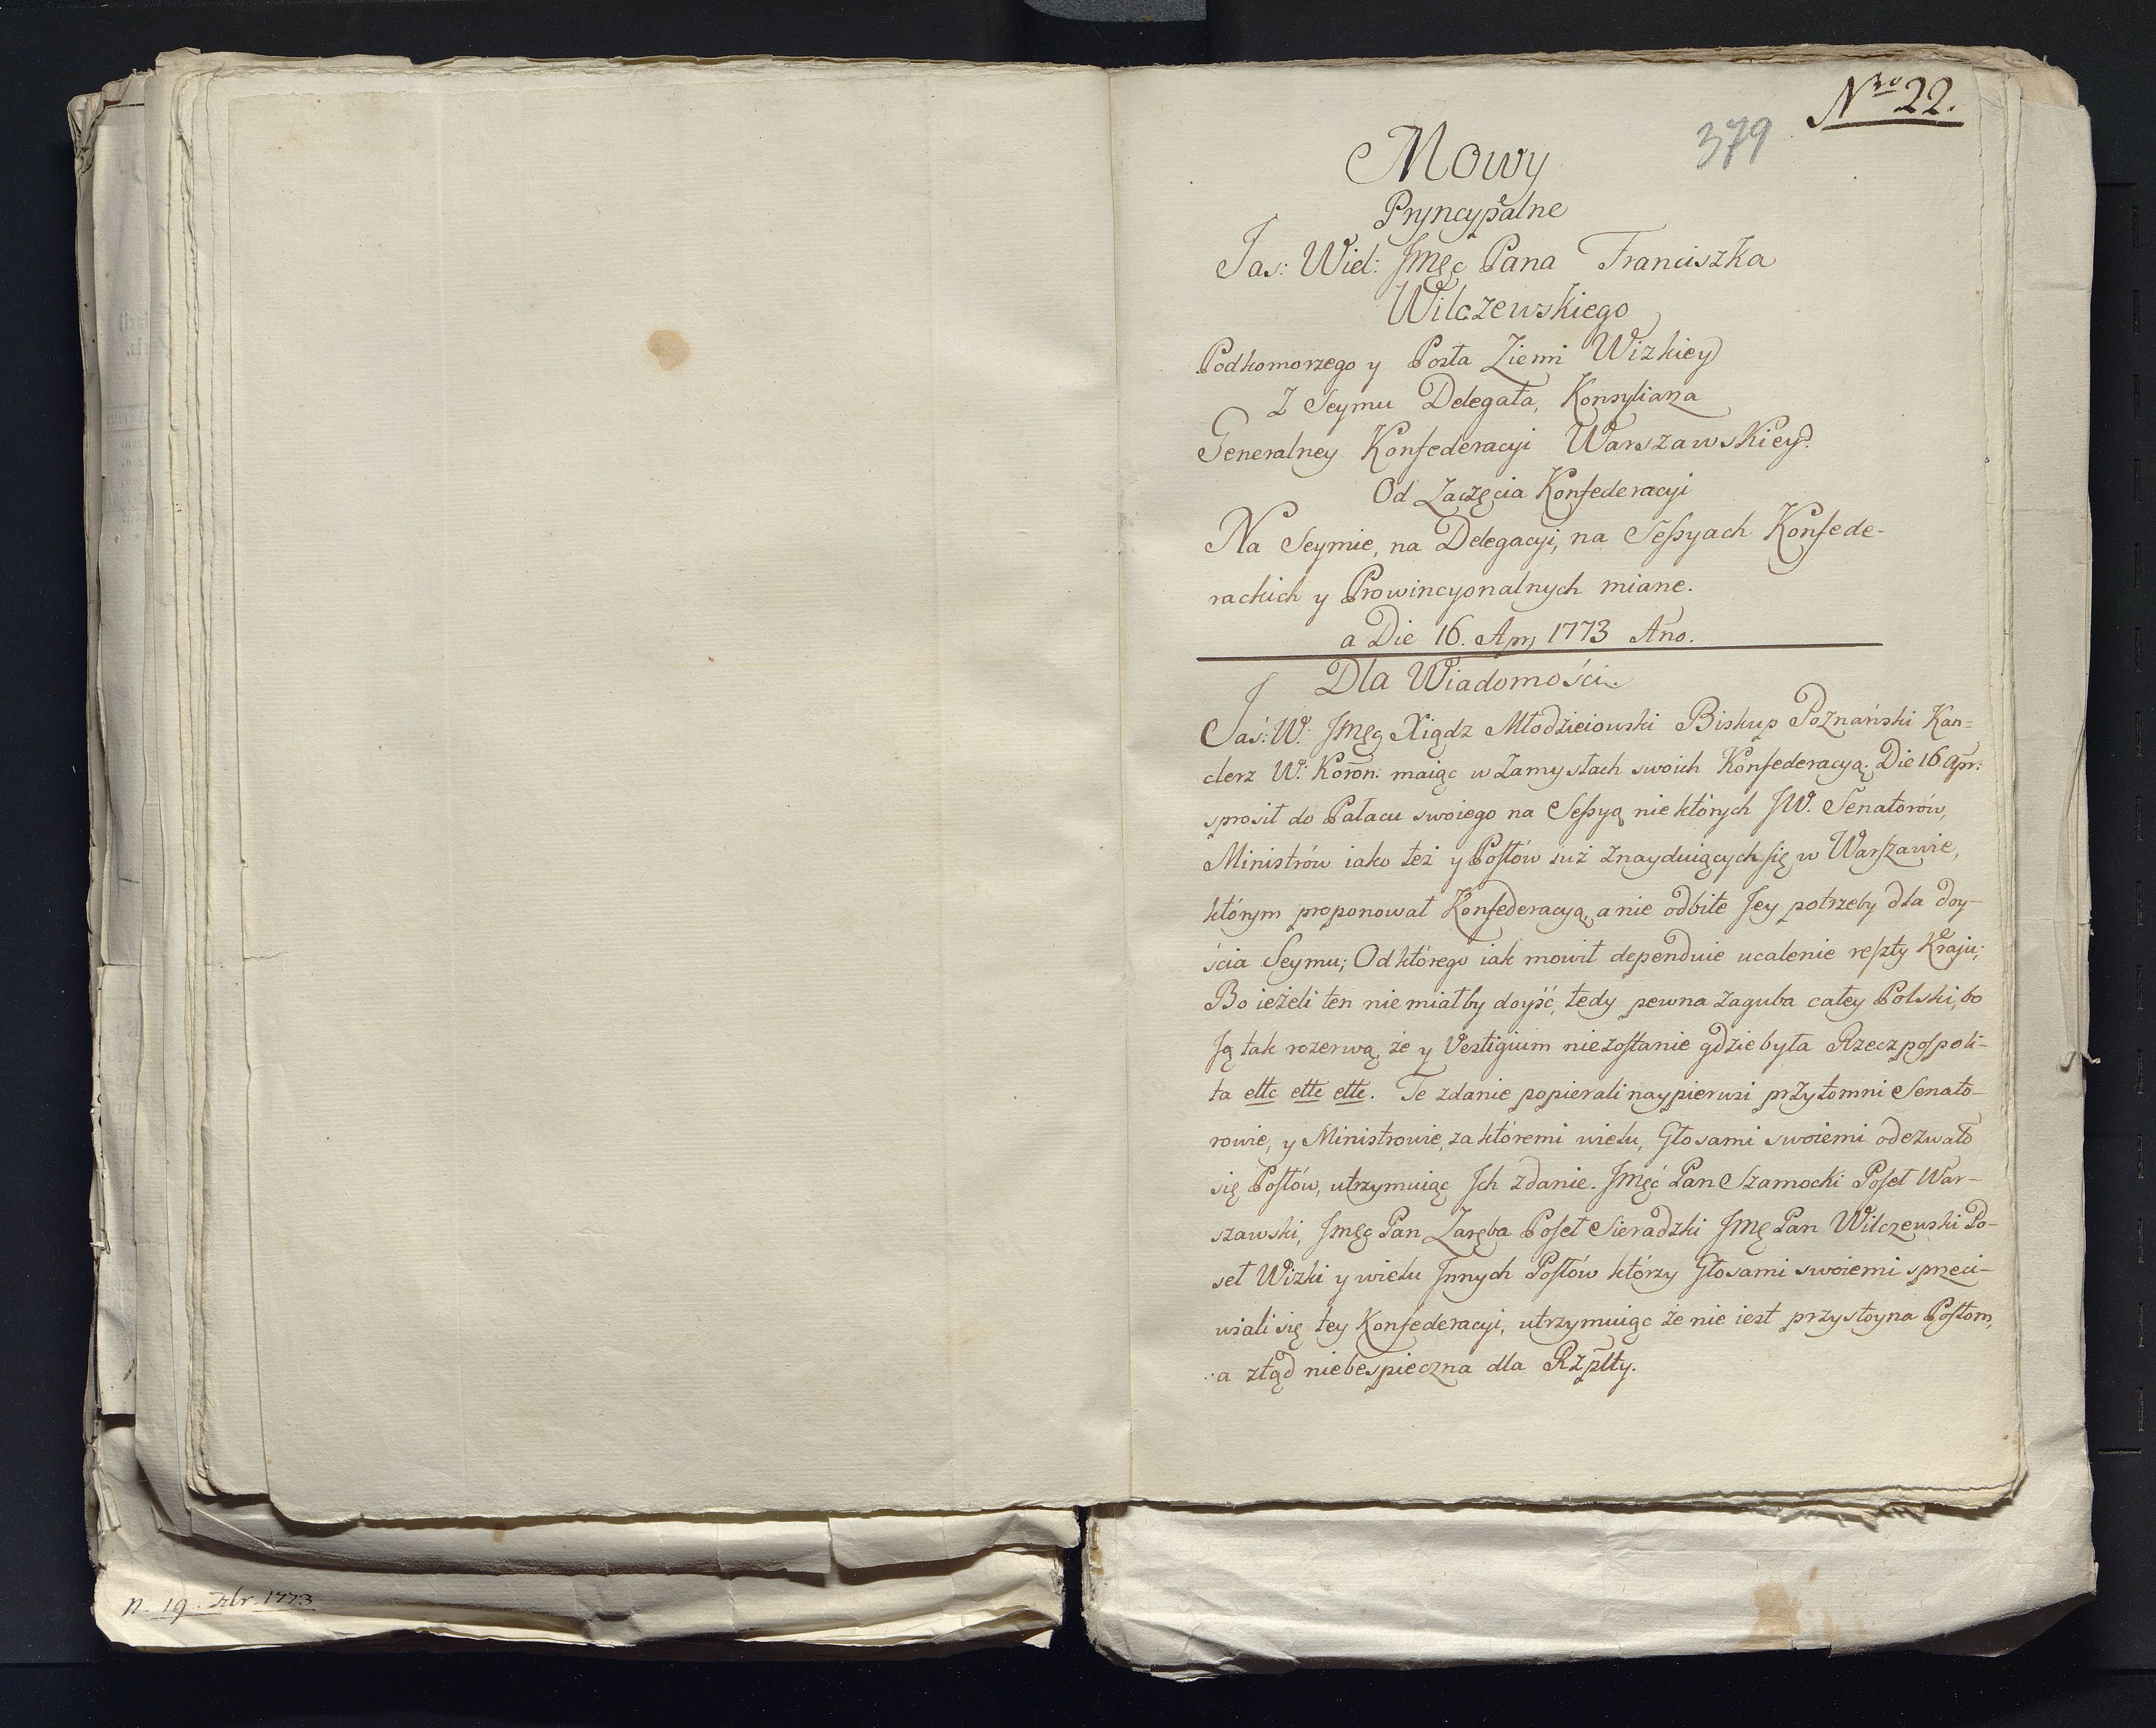 Nro 22.
379
Mowy
Pryncypalne
Jas: Wiel: Jmęć Pana Franciszka
Wilczewskiego
Podkomorzego y Posła Ziemi Wizkiey
Z Seymu Delegata, Konsyliarza
Generalney Konfederacyi Warszawskiey.
Od Zaczęcia Konfederacyi
Na Seymie, na Delegacyi, na Seſsyach Konfede-
rackich y Prowincyonalnych miane.
a Die 16. Apr, 1773 Ano.
Dla Wiadomości.
Jaś: W: Jmęć Xiądz Młodzieiowski Biskup Poznański Kan=
clerz W: Koron: maiąc w Zamysłach swoich Konfederacyą. Die 16 Apr:
sprosił do Pałacu swoiego na Seſsyą niektórych JW. Senatorów,
Ministrów iako też y Poſłów iuż znayduiących ſię w Warſzawie,
którym proponował Konfederacyą, a nie odbite Jey potrzeby dla doy-
ścia Seymu; Od którego iak mowił dependuie ucalenie reſzty Kraju;
Bo ieżeli ten nie miałby doyść, tedy pewna zaguba całey Polski, bo
Ją tak rozerwą, że y Vestigium niezoſtanie gdzie była Rzeczpoſpoli-
ta ettc ettc ettc. Te zdanie popierali naypierwsi przytomni Senato-
rowie, y Ministrowie, za któremi wielu, Głosami swoiemi odezwało
się Poſłów, utrzymuiąc Ich zdanie. Jmęć Pan Szamocki Poſeł War-
szawski, Jmęć Pan Zaręba Poſeł Sieradzki Jmę Pan Wilczewski Po-
seł Wizki y wielu Innych Poſłów którzy Głosami swoiemi sprzeci-
wiali się tey Konfederacyi, utrzymuiąc że nie iest przystoyna Poſłom,
a ztąd niebespieczna dla Rzpltty.
n. 19. Xbr. 1773